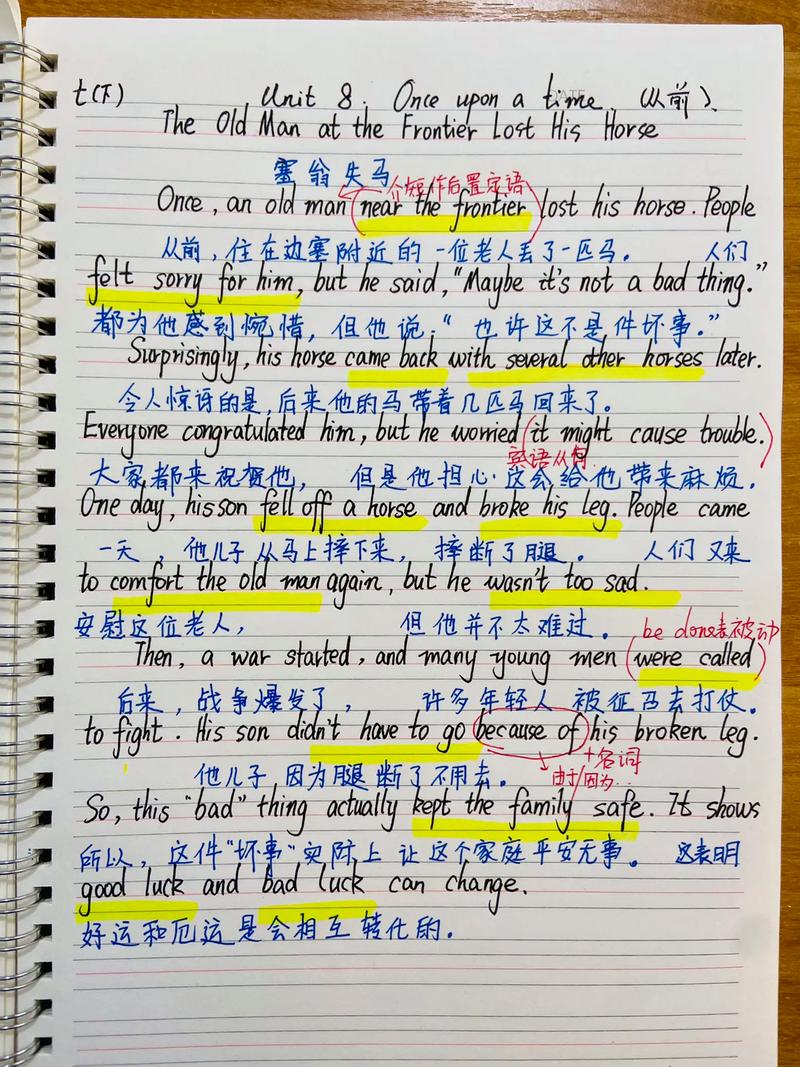 t(下) Unit 8. Once upon a time. (从前)、
The Old Man at the Frontier Lost His Horse
塞翁失马
介短作后置定语
Once, an old man (near the frontier) lost his horse. People
从前，住在边塞附近的一位老人丢了一匹马。 人们
felt sorry for him, but he said, "Maybe it's not a bad thing."
都为他感到惋惜，但他说："也许这不是件坏事。"
Surprisingly, his horse came back with several other horses later.
令人惊讶的是，后来他的马带着几匹马回来了。
Everyone congratulated him, but he worried (it might cause trouble.)
宾语从句
大家都来祝贺他， 但是他担心这会给他带来麻烦.
One day, his son fell off a horse and broke his leg. People came
一天，他儿子从马上摔下来，摔断了腿。 人们又来
to comfort the old man again, but he wasn't too sad.
安慰这位老人， 但他并不太难过。
be done表被动
Then, a war started, and many young men (were called)
后来，战争爆发了， 许多年轻人被征召去打仗。
to fight. His son didn't have to go because of his broken leg.
+名词
由于/因为...
他儿子因为腿断了不用去。
So, this "bad" thing actually kept the family safe. It shows
所以，这件"坏事"实际上让这个家庭平安无事。 这表明
good luck and bad luck can change.
好运和厄运是会相互转化的.